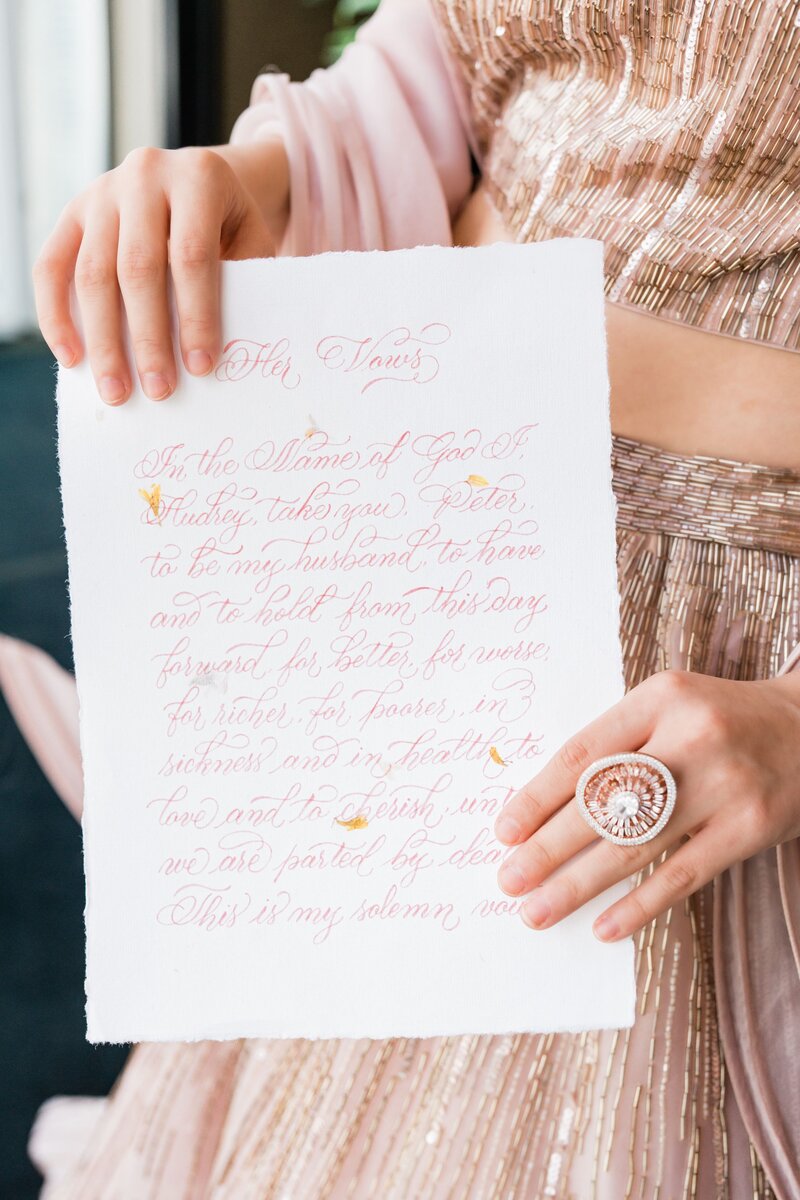 Her Vows
In the Name of God I,
Audrey, take you, Peter,
to be my husband, to have
and to hold from this day
forward, for better, for worse,
for richer, for poorer, in
sickness and in health, to
love and to cherish, unt
we are parted by dea
This is my solemn vow